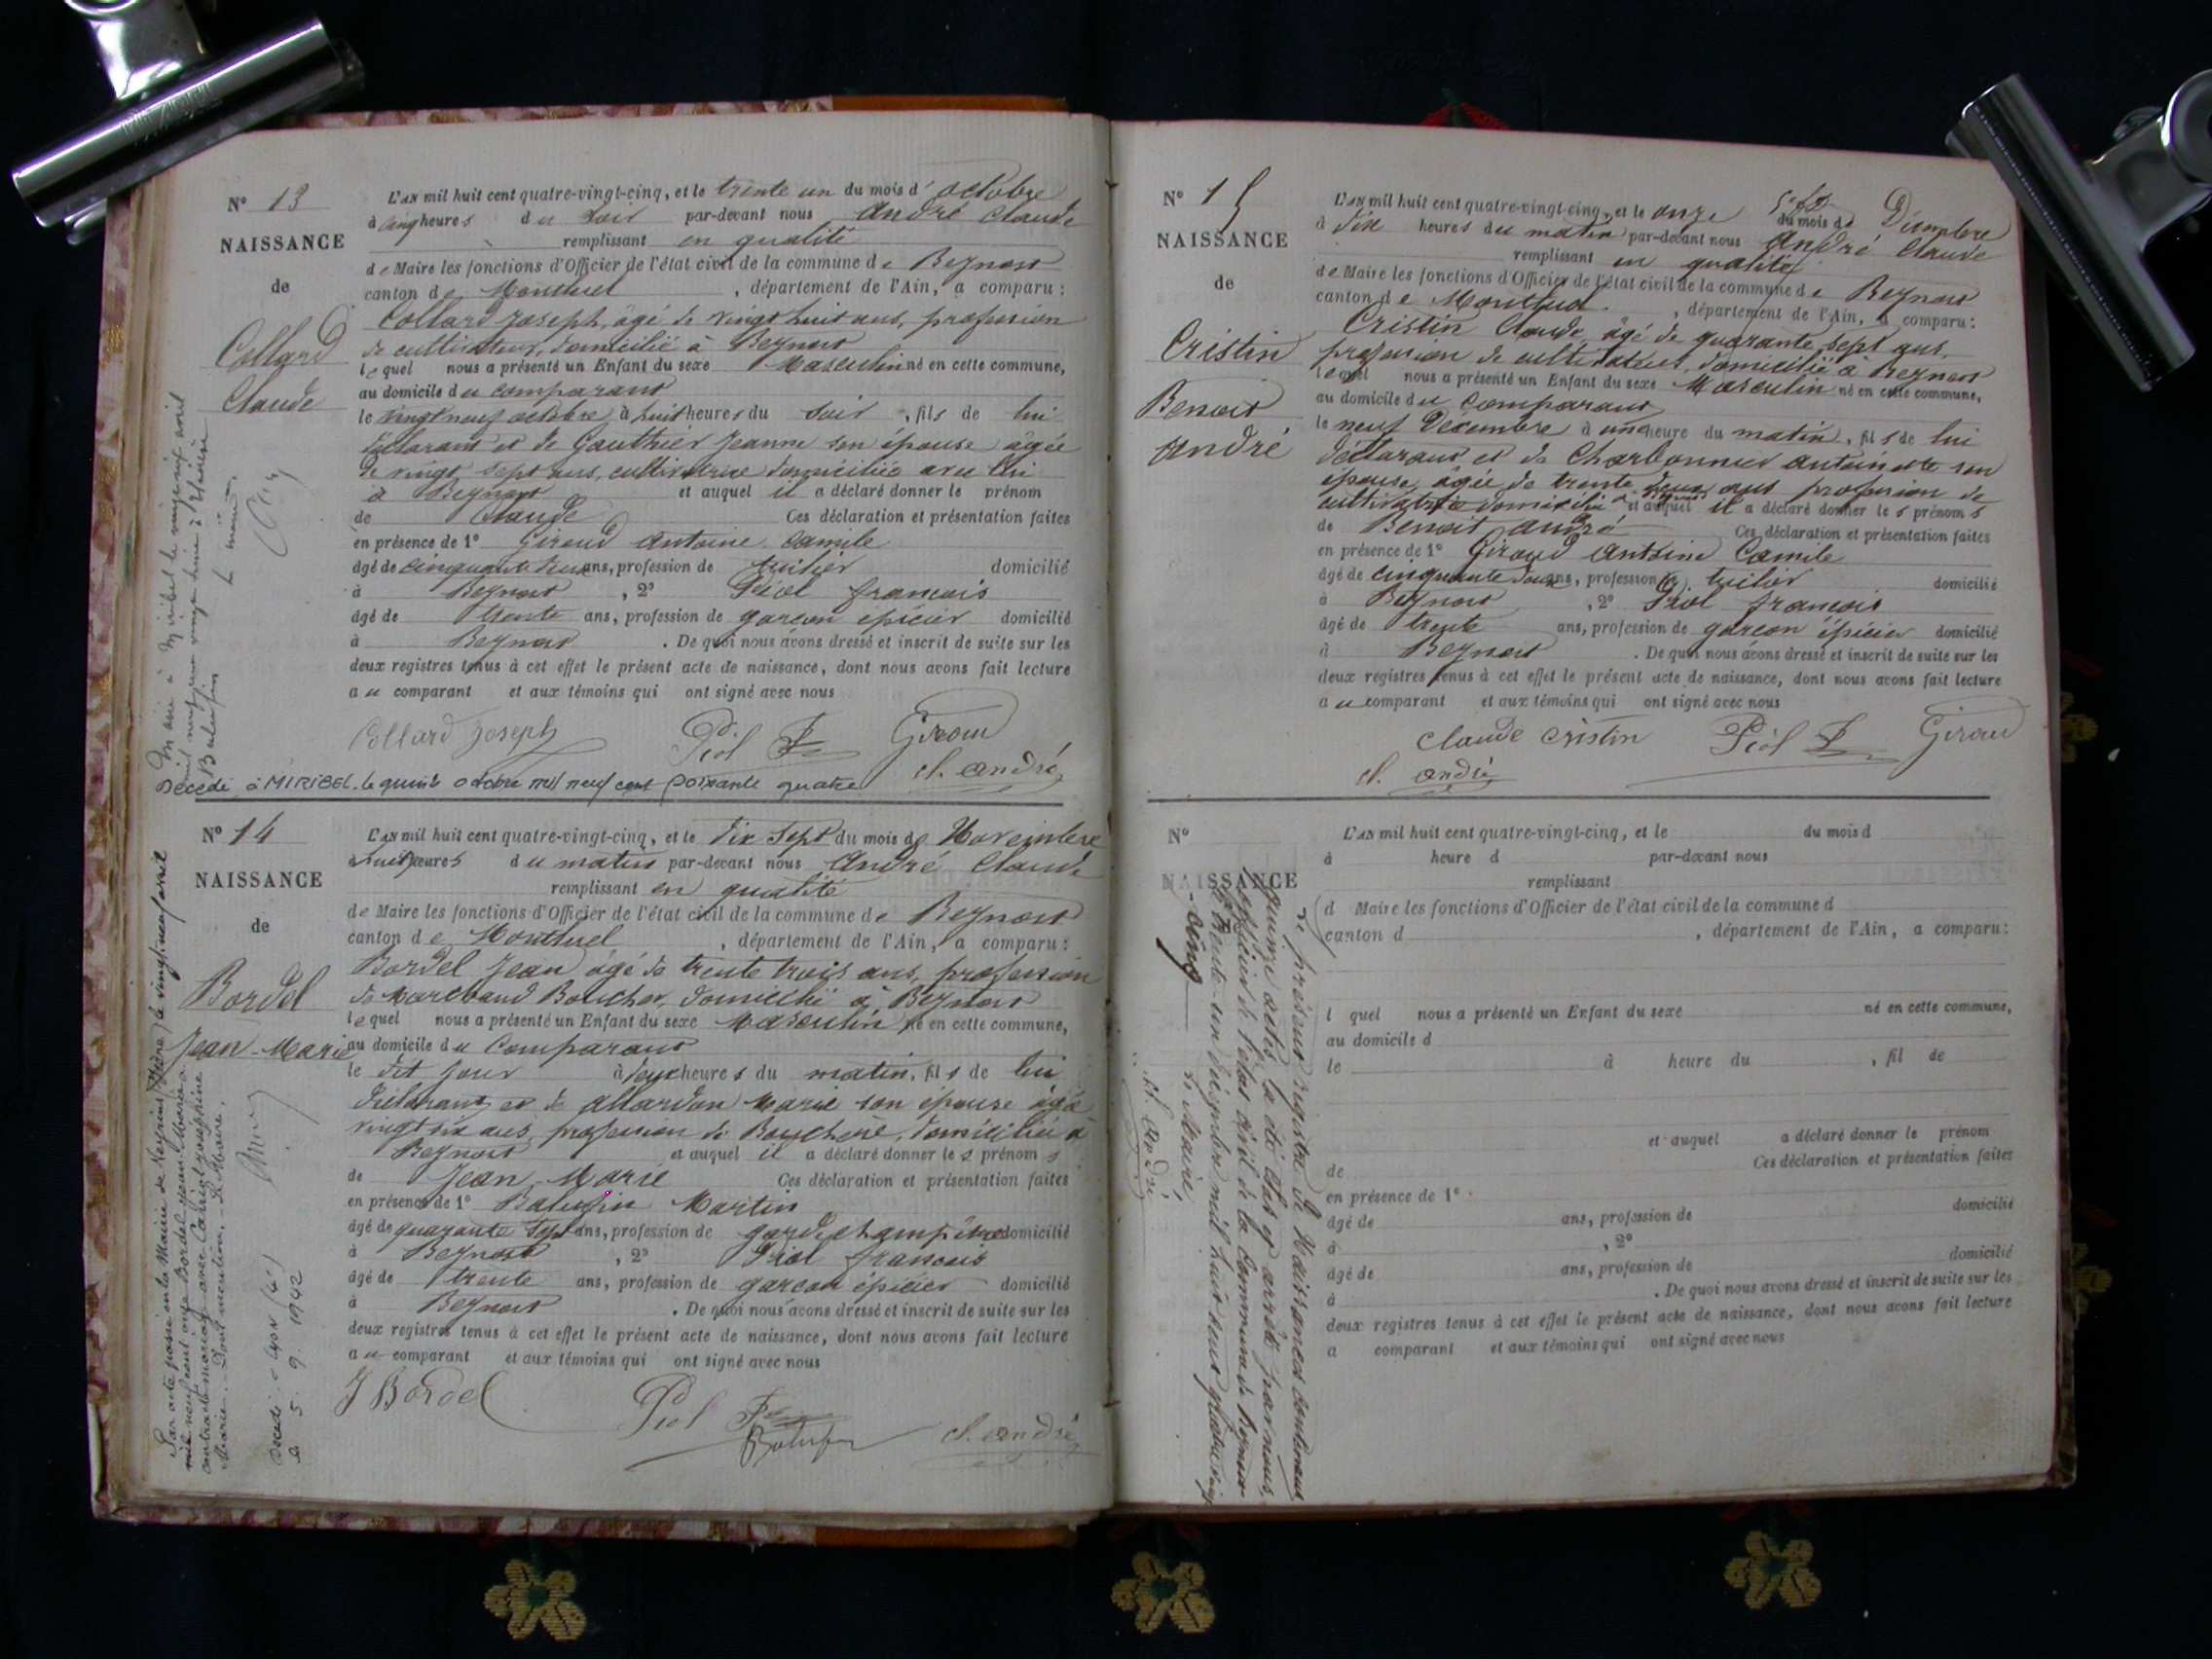 N° 13
NAISSANCE
de
Collard
Claude
L'AN mil huit cent quatre-vingt-cinq, et le trente un du mois d' octobre
à cinq heures du soir par-devant nous André Claude
remplissant en qualité
de Maire les fonctions d'Officier de l'état civil de la commune de Beynost
canton de Montluel, département de l'Ain, a comparu :
Collard Joseph, âgé de vingt huit ans, profession
de cultivateur, domicilié à Beynost
lequel nous a présenté un Enfant du sexe Masculin né en cette commune,
au domicile du comparant
le vingt neuf octobre, à huit heures du soir, fils de lui
déclarant et de Gauthier Jeanne son épouse âgée
de vingt sept ans, cultivatrice domiciliée avec lui
à Beynost et auquel il a déclaré donner le prénom
de Claude Ces déclaration et présentation faites
en présence de 1° Giroud Antoine Camile
âgé de cinquante deux ans, profession de tuilier domicilié
à Beynost, 2° Piol françois
âgé de trente ans, profession de garçon épicier domicilié
à Beynost. De quoi nous avons dressé et inscrit de suite sur les
deux registres tenus à cet effet le présent acte de naissance, dont nous avons fait lecture
au comparant et aux témoins qui ont signé avec nous
Collard Joseph Piol F Giroud
cl. andré
Marié à Miribel le vingt neuf avril
mil neuf cent vingt à Thérèse
Balufin
Décédé à MIRIBEL. le quinze octobre mil neuf cent soixante quatre
N° 14
NAISSANCE
de
Bordel
Jean-Marie
L'AN mil huit cent quatre-vingt-cinq, et le dix sept du mois de Novembre
à huit heures du matin par-devant nous André Claude
remplissant en qualité
de Maire les fonctions d'Officier de l'état civil de la commune de Beynost
canton de Montluel, département de l'Ain, a comparu :
Bordel Jean âgé de trente trois ans, profession
de Marchand Boucher, domicilié à Beynost
lequel nous a présenté un Enfant du sexe Masculin né en cette commune,
au domicile du Comparant
le dit jour à heures du matin, fils de lui
déclarant et de Allardon Marie son épouse âgée
vingt six ans, profession de Bouchère, domiciliée à
Beynost et auquel il a déclaré donner les prénoms
de Jean, Marie Ces déclaration et présentation faites
en présence de 1° Balufin Martin
âgé de quarante sept ans, profession de garde champêtre domicilié
à Beynost, 2° Piol françois
âgé de trente ans, profession de garçon épicier domicilié
à Beynost. De quoi nous avons dressé et inscrit de suite sur les
deux registres tenus à cet effet le présent acte de naissance, dont nous avons fait lecture
au comparant et aux témoins qui ont signé avec nous
J Bordel Piol F
Balufin cl. andré
Par acte passé en la Mairie de Neyrieu (Isère) le vingt neuf avril
mil neuf cent onze Bordel Jean-Marie a
contracté mariage avec Joséphine
Marie. Dont mention. Le Maire.
Décédé à LYON (4e)
le 5. 9. 1942
N° 15
NAISSANCE
de
Cristin
Benoit
André
L'AN mil huit cent quatre-vingt-cinq, et le onze du mois de Décembre
à dix heures du matin par-devant nous André Claude
remplissant en qualité
de Maire les fonctions d'Officier de l'état civil de la commune de Beynost
canton de Montluel, département de l'Ain, a comparu :
Cristin Claude âgé de quarante sept ans,
profession de cultivateur, domicilié à Beynost
lequel nous a présenté un Enfant du sexe Masculin né en cette commune,
au domicile du Comparant
le neuf Décembre à une heure du matin, fils de lui
déclarant et de Charbonnier Antoinette son
épouse, âgée de trente deux ans profession de
cultivatrice domiciliée à Beynost et auquel il a déclaré donner les prénoms
de Benoit André Ces déclaration et présentation faites
en présence de 1° Giroud Antoine Camile
âgé de cinquante deux ans, profession de tuilier domicilié
à Beynost, 2° Piol françois
âgé de trente ans, profession de garçon épicier domicilié
à Beynost. De quoi nous avons dressé et inscrit de suite sur les
deux registres tenus à cet effet le présent acte de naissance, dont nous avons fait lecture
au comparant et aux témoins qui ont signé avec nous
Claude Cristin Piol F Giroud
cl. andré
N°
NAISSANCE
L'AN mil huit cent quatre-vingt-cinq, et le du mois d
à heure d par-devant nous
remplissant
d Maire les fonctions d'Officier de l'état civil de la commune d
canton d, département de l'Ain, a comparu :
l quel nous a présenté un Enfant du sexe né en cette commune,
au domicile d
le à heure du, fil de
et auquel a déclaré donner le prénom
de Ces déclaration et présentation faites
en présence de 1°
âgé de ans, profession de domicilié
à, 2°
âgé de ans, profession de domicilié
à. De quoi nous avons dressé et inscrit de suite sur les
deux registres tenus à cet effet le présent acte de naissance, dont nous avons fait lecture
a comparant et aux témoins qui ont signé avec nous
Le présent registre de Naissances contenant
quinze actes, a été clos et arrêté par nous,
officier de l'état civil de la Commune de Beynost
le trente un décembre mil huit cent quatre vingt
-cinq
Le Maire,
cl. andré